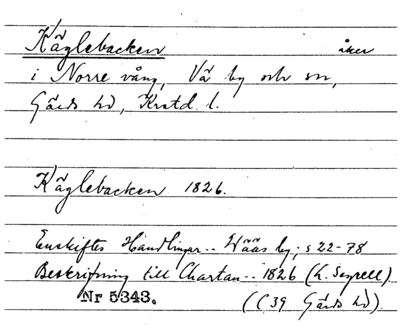 Käglebacken åker
i Norre vång, Vä by och sn,
Gärds hd, Kristd. l.
Käglebacken 1826.
Enskiftes Handlingar -- Wääs by; s 22-78
Beskrifning till Chartan -- 1826 (L. Seyrell)
Nr 5343. ((39 Gärds hd)